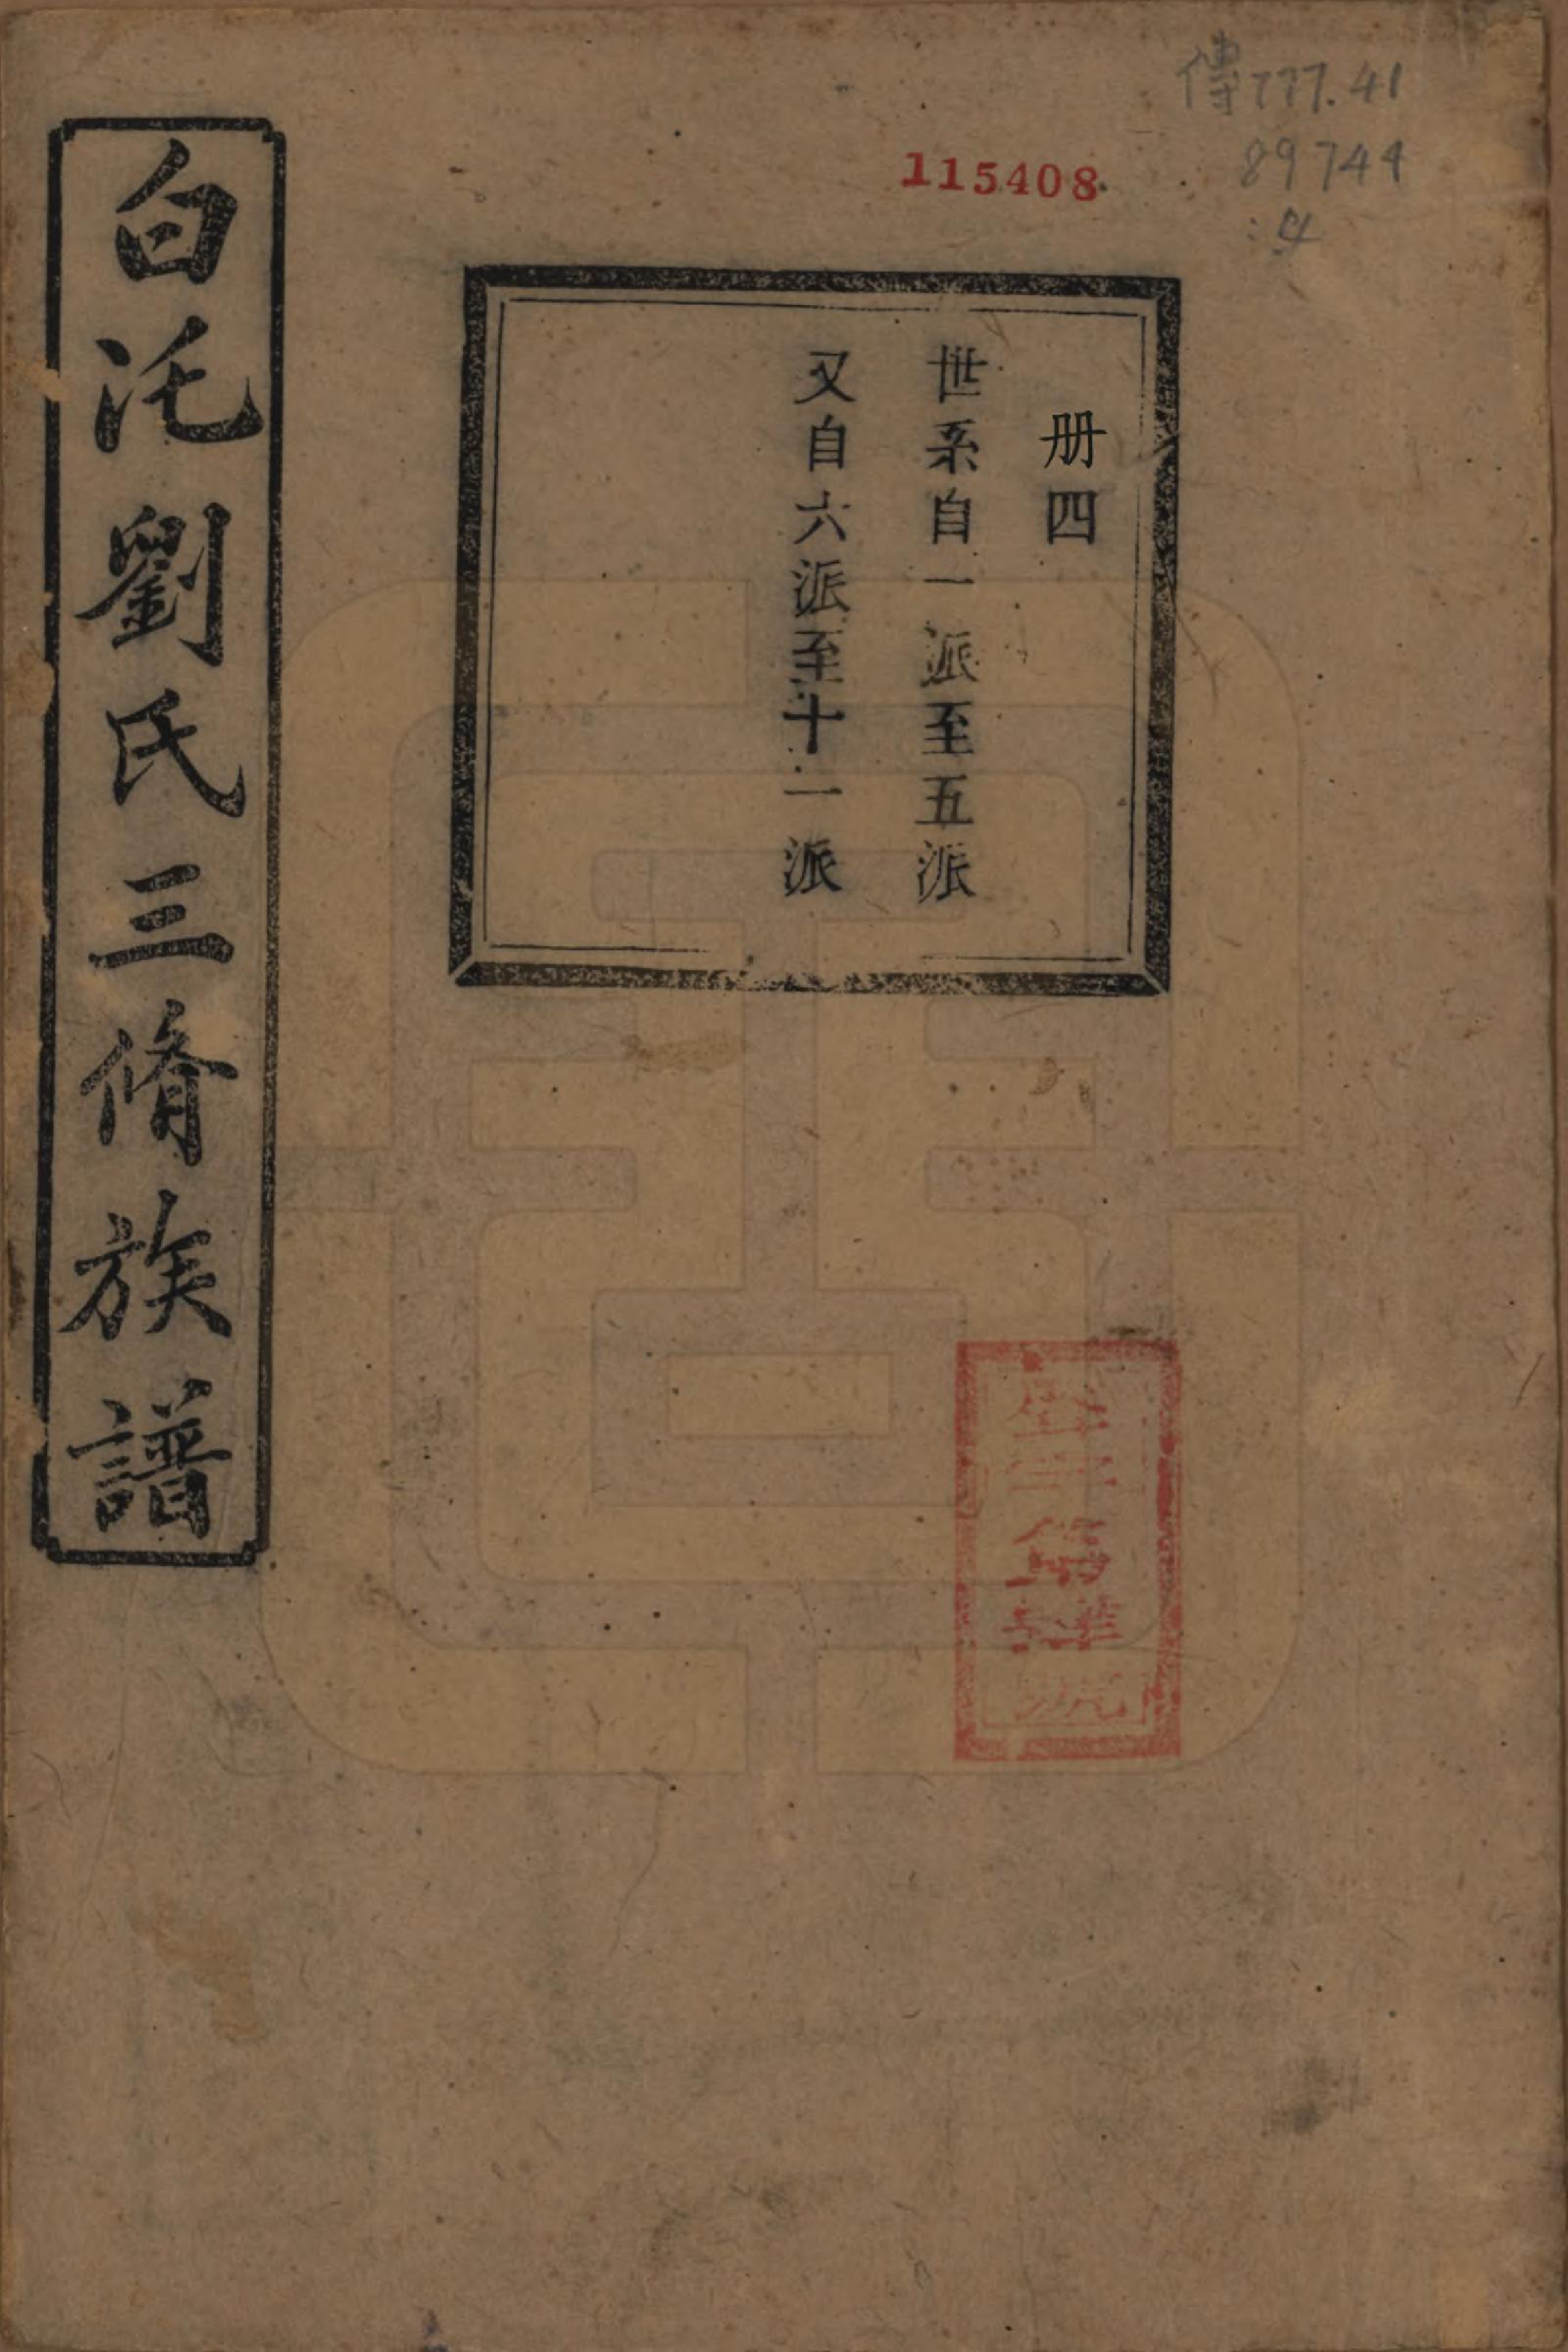 傳777.41
89744
:4
115408
册四
世系自一派至五派
又自六派至十一派
白沚劉氏三脩族譜
號